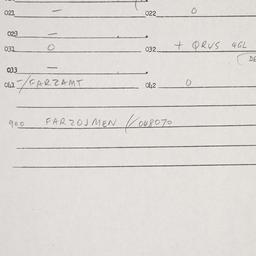 021 — 022 0
023 —
031 0 032 + QRVS 4GL
033 —
041 -/GARZAMT 042 0
900 FARZOJMEN // 048070